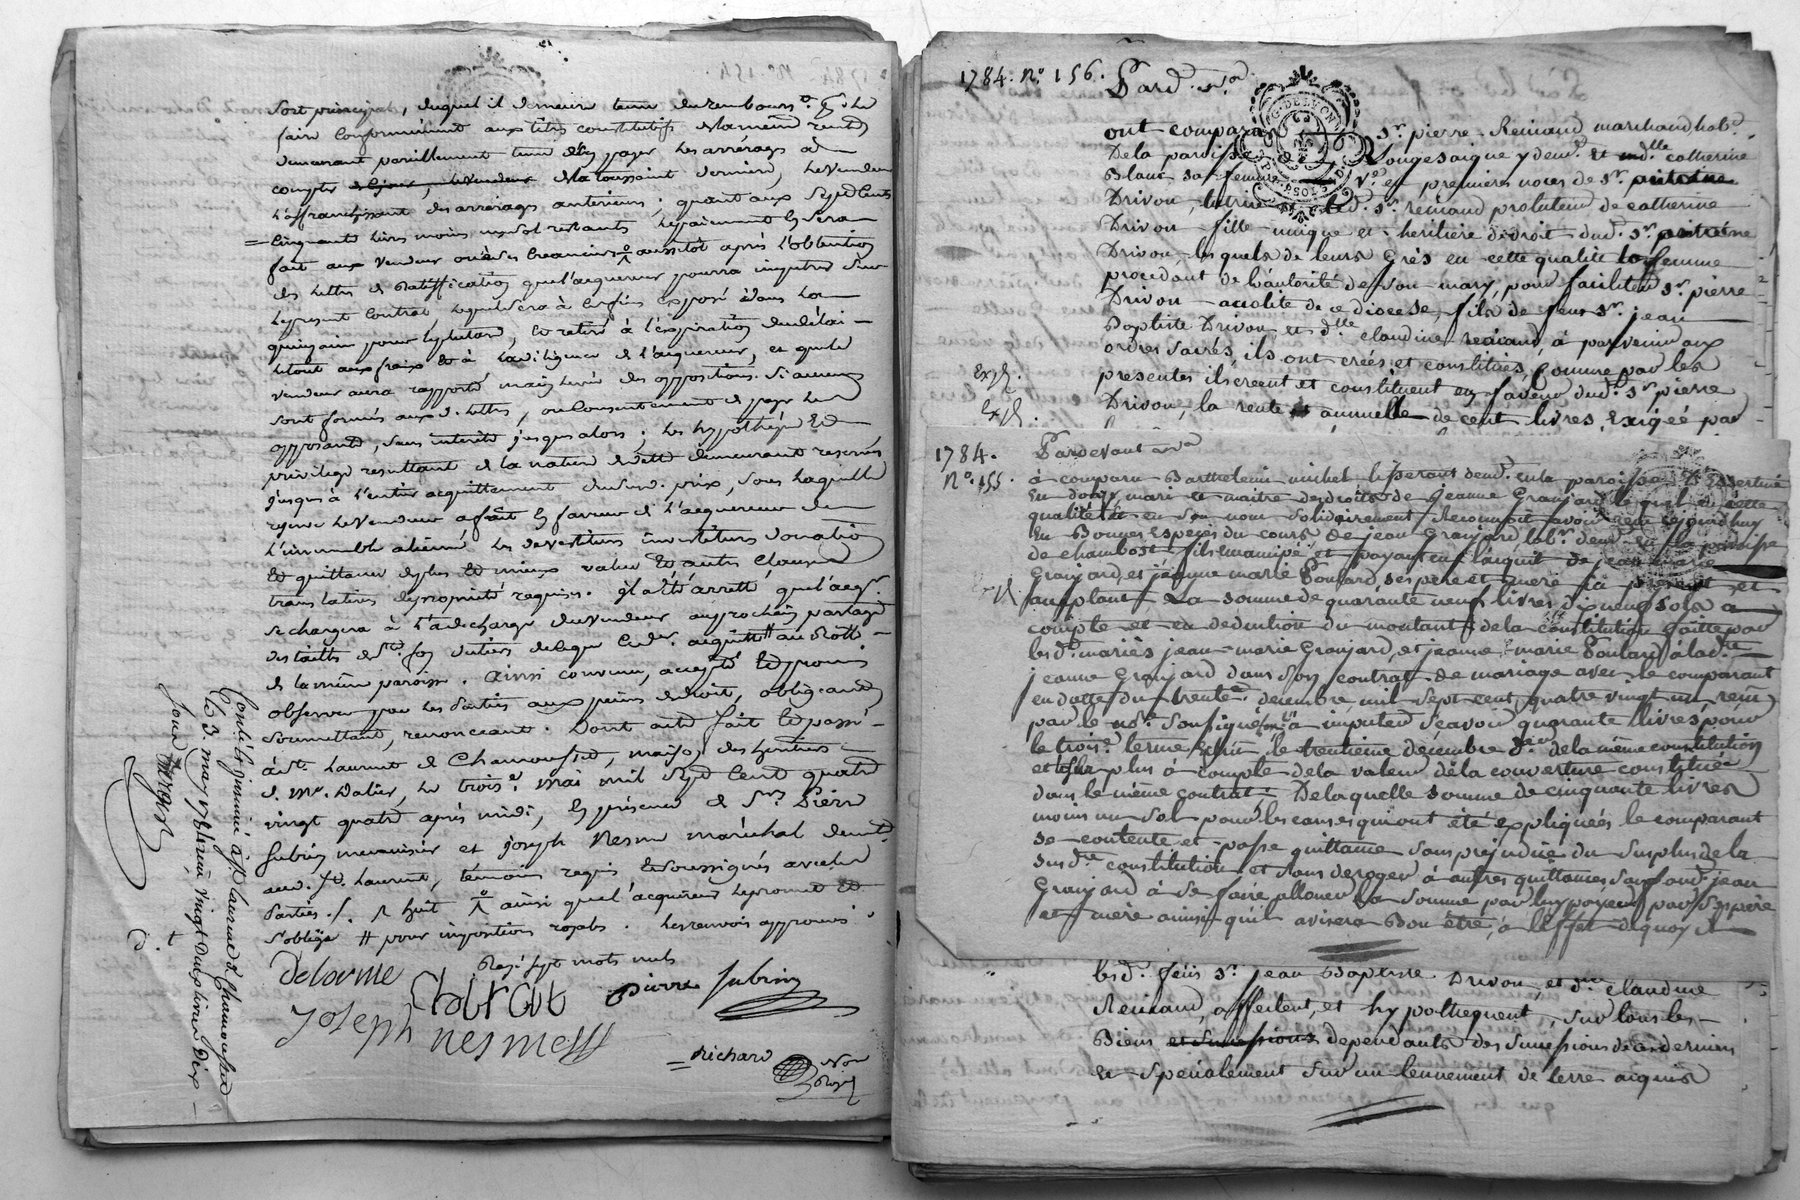 sort principal, duquel il demeure tenu du rembours.t
faire conformément aux titres constitutifs de la même rente
demeurant pareillement tenu d'en payer les arrérages à
compter de la toussaint dernière, le vendeur
l'affranchissant des arrérages antérieurs; quant aux sept cents
cinquante livres moins un sol restants le paiement en sera
fait aux vendeur ou à ses créanciers aussitôt après l'obtention
des lettres de ratiffication que l'acquereur pourra impetrer sur
le present contrat, lequel sera à ces fins exposé dans la
quinzaine pour le plus tard, et retiré à l'expiration du délai
le tout aux frais et à la diligence de l'acquereur, et que le
vendeur aura rapporté main levée des oppositions. Si aucunes
sont formées aux d. lettres, ou consentement de payer les
opposants, sans interêts jusques alors; les hypothèque et
privilege resultant de la nature de dette demeurant reservés
jusques à l'entier acquittement du susd. prix, sous laquelle
reserve le vendeur a fait en faveur de l'acquereur de
l'immeuble aliéné les devestiture investiture donation
et quittance de plus et mieux value et autres clauses
translatives de propriété requises. il a été arretté que l'acq.r
se chargera à la décharge du vendeur au prochain partage
des tailles de St. foy
de la même paroisse. ainsi convenu, accepté et promis
observer par les parties aux peines de droit, obligeant
soumettant, renonceant. Dont acte fait et passé
à St. Laurent de Chamousset, maison des heritiers
d. Me. Dalier, le trois.e mai mil sept cent quatre
vingt quatre après midi, en présence de Srs. Pierre
Subrin menuisier et joseph Nesme maréchal demt.
aud. St. Laurent, témoins requis et soussignés avec les
parties. /. huit ainsi que l'acquéreur le promet et
s'oblige # pour impositions royales. les renvois approuvés.
Rayé sept mots nuls
Delorme Chatrat Pierre Subrin
Joseph nesme
richard No.re Royal
Controllé & insinué à St laurent de Chamousset
le 3 may 1784 reçu vingt deux livres dix
d. t
1784. n.° 156. Pard. n.re
G. DE LYON
ont comparu Sr. pierre Reinaud marchand hab.t
De la paroisse de Longesaigne y dem.t et d.lle catherine
Blanc sa femme V.e en premieres noces de Sr. antoine
Drivon, led. Sr. réinaud protuteur de catherine
Drivon fille unique et heritiere de droit dud. Sr. antoine
Drivon, lesquels de leurs Grés en cette qualité la femme
procedant de l'autorité de son mary, pour faciliter Sr. pierre
Drivon acolite de ce diocese, fils de feus Sr. jean
Baptiste Drivon et d.lle claudine reinaud, à parvenir aux
ordres sacrés, ils ont créés et constitués, comme par les
presentes ils creent et constituent en faveur dud. Sr. pierre
Drivon, la rente annuelle de cent livres, exigée par
Exp.
Exp.
1784.
N.° 155.
Pardevant n.re
à comparu Barthelemi michel tisserant dem.t en la paroisse d'Essertine
en donzy, mari et maitre des droits de jeanne Granjard lequel en cette
qualité et en son nom solidairement Reconnoit avoir reçu ce jourdhuy
en Bonnes Especes du cours de jean Granjard lab.r dem.t en la paroisse
de chambost, fils emancipé et payant en l'acquit de jean marie
Granjard, et jéanne marie Poulard, ses pere et mere ici présent et
acceptant La somme de quarante neuf livres dix neuf sols à
compte et en deduction du montant de la constitution faitte par
lesd. mariés jean-marie Granjard, et jeanne-marie Poulard à lad.te
jeanne Granjard dans son contrat de mariage avec le comparant
en datte du trente.e decembre, mil sept cent quatre vingt un reçu
par le no.re soussigné à imputer sçavoir quarante livres pour
le trois.e terme échu le trentieme decembre d.er de la même constitution
et le surplus à compte de la valeur de la couverture constituée
dans le même contrat. De laquelle somme de cinquante livres
moins un sol pour les causes qui ont été expliquées le comparant
se contente et passe quittance sans prejudice du surplus de la
susd.te constitution et sans deroger à autres quittances sauf aud. jean
Granjard à se faire allouer la somme par luy payée par ses pere
et mere ainsi qu'il avisera Bon être, à l'effet de quoy
lesd. feus Sr. jean Baptiste Drivon, et d.lle claudine
Reinaud, affectent, et hypothequent, sur tous les
Biens et successions dependants des successions de ces derniers
et specialement sur un tennement de terre acquis